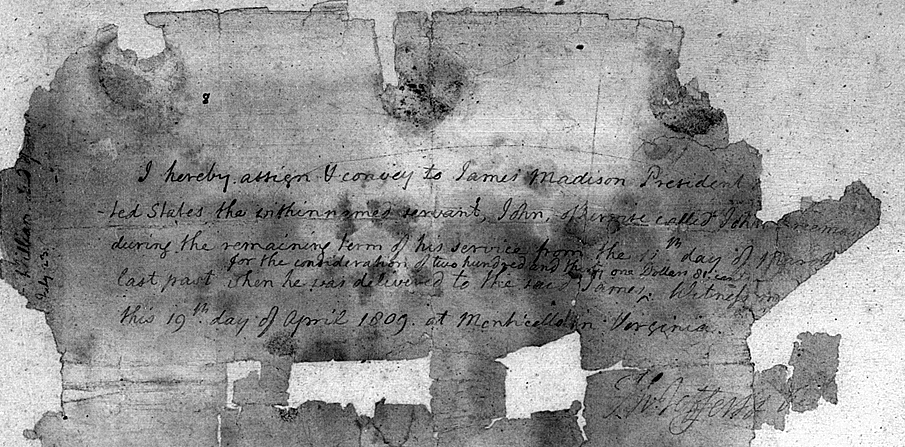 I hereby assign & convey to James Madison President
ted States the within named servant, John, otherwise called John Freeman
during the remaining term of his service from the 11th day of March
for the consideration of two hundred and thirty one Dollars 81 cents
last past when he was delivered to the said James. Witness my
this 19th. day of April 1809. at Monticello in Virginia.
Th. Jefferson